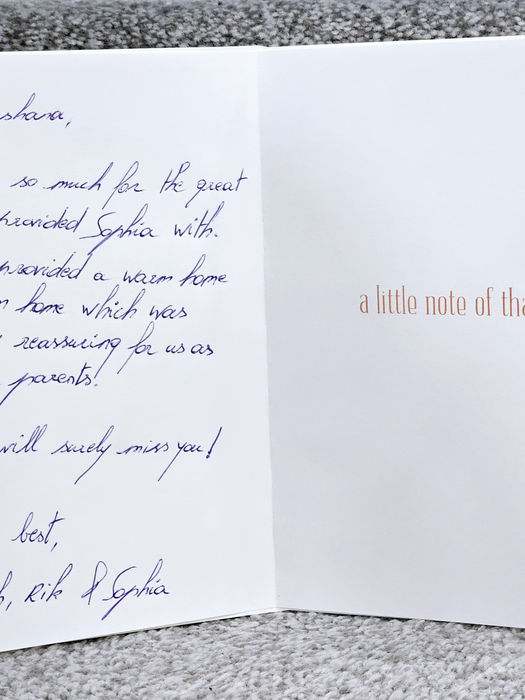 shana,
so much for the great
provided Sophia with.
provided a warm home
home which was
reassuring for us as
parents!
will surely miss you!
best,
Rik & Sophia
a little note of tha